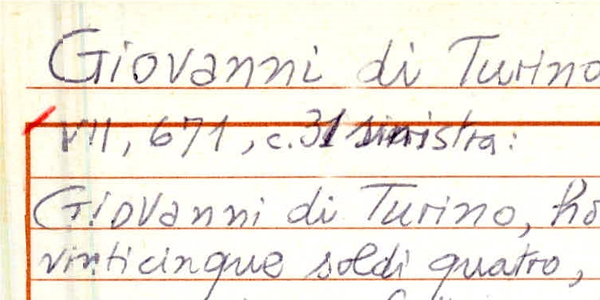 Giovanni di Turino
VII, 671, c. 31 sinistra:
Giovanni di Turino,
vinticinque soldi quatro,